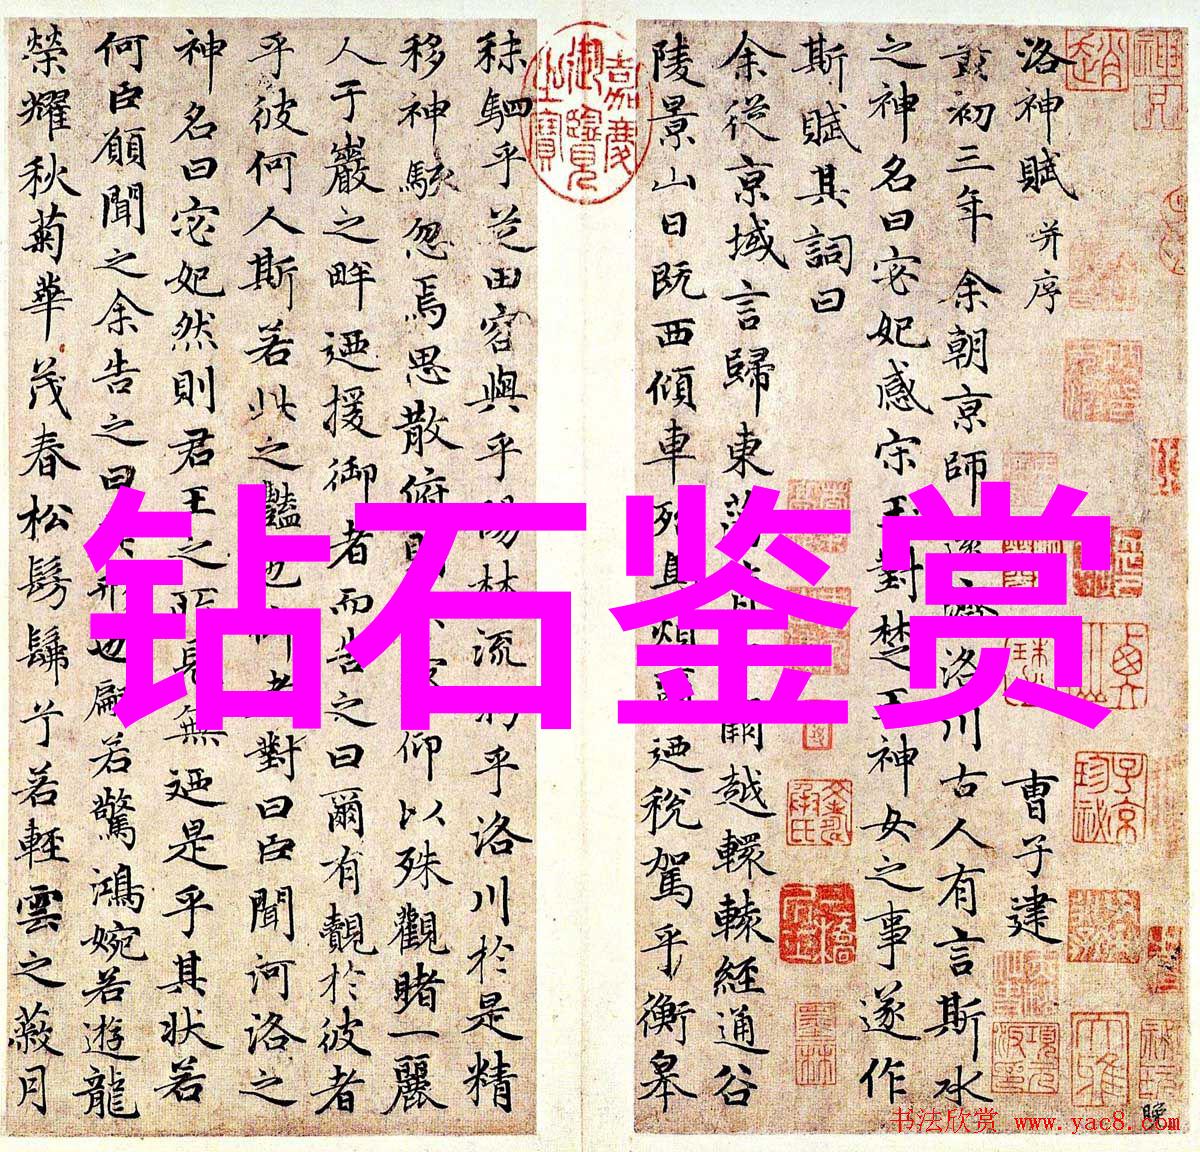 洛神賦 并序 曹子建
黃初三年余朝京師還濟洛川古人有言斯水
之神名曰宓妃感宋玉對楚王神女之事遂作
斯賦其詞曰
余從京域言歸東藩闕越轘轅經通谷
陵景山日既西傾車殆馬煩迺稅駕乎衡皋
嘉慶御覽之寶
秣駟乎芝田容與乎陽林流乎洛川於是精
移神駭忽焉思散俯仰以殊觀睹一麗
人于巖之畔迺援御者而告之曰爾有覿於彼者
乎彼何人斯若此之豔也者對曰臣聞河洛之
神名曰宓妃然則君王之所見無迺是乎其狀若
何臣願聞之余告之曰形也翩若驚鴻婉若遊龍
榮耀秋菊華茂春松髣髴兮若輕雲之蔽月
钻石鉴赏
书法欣赏 www.yac8.com